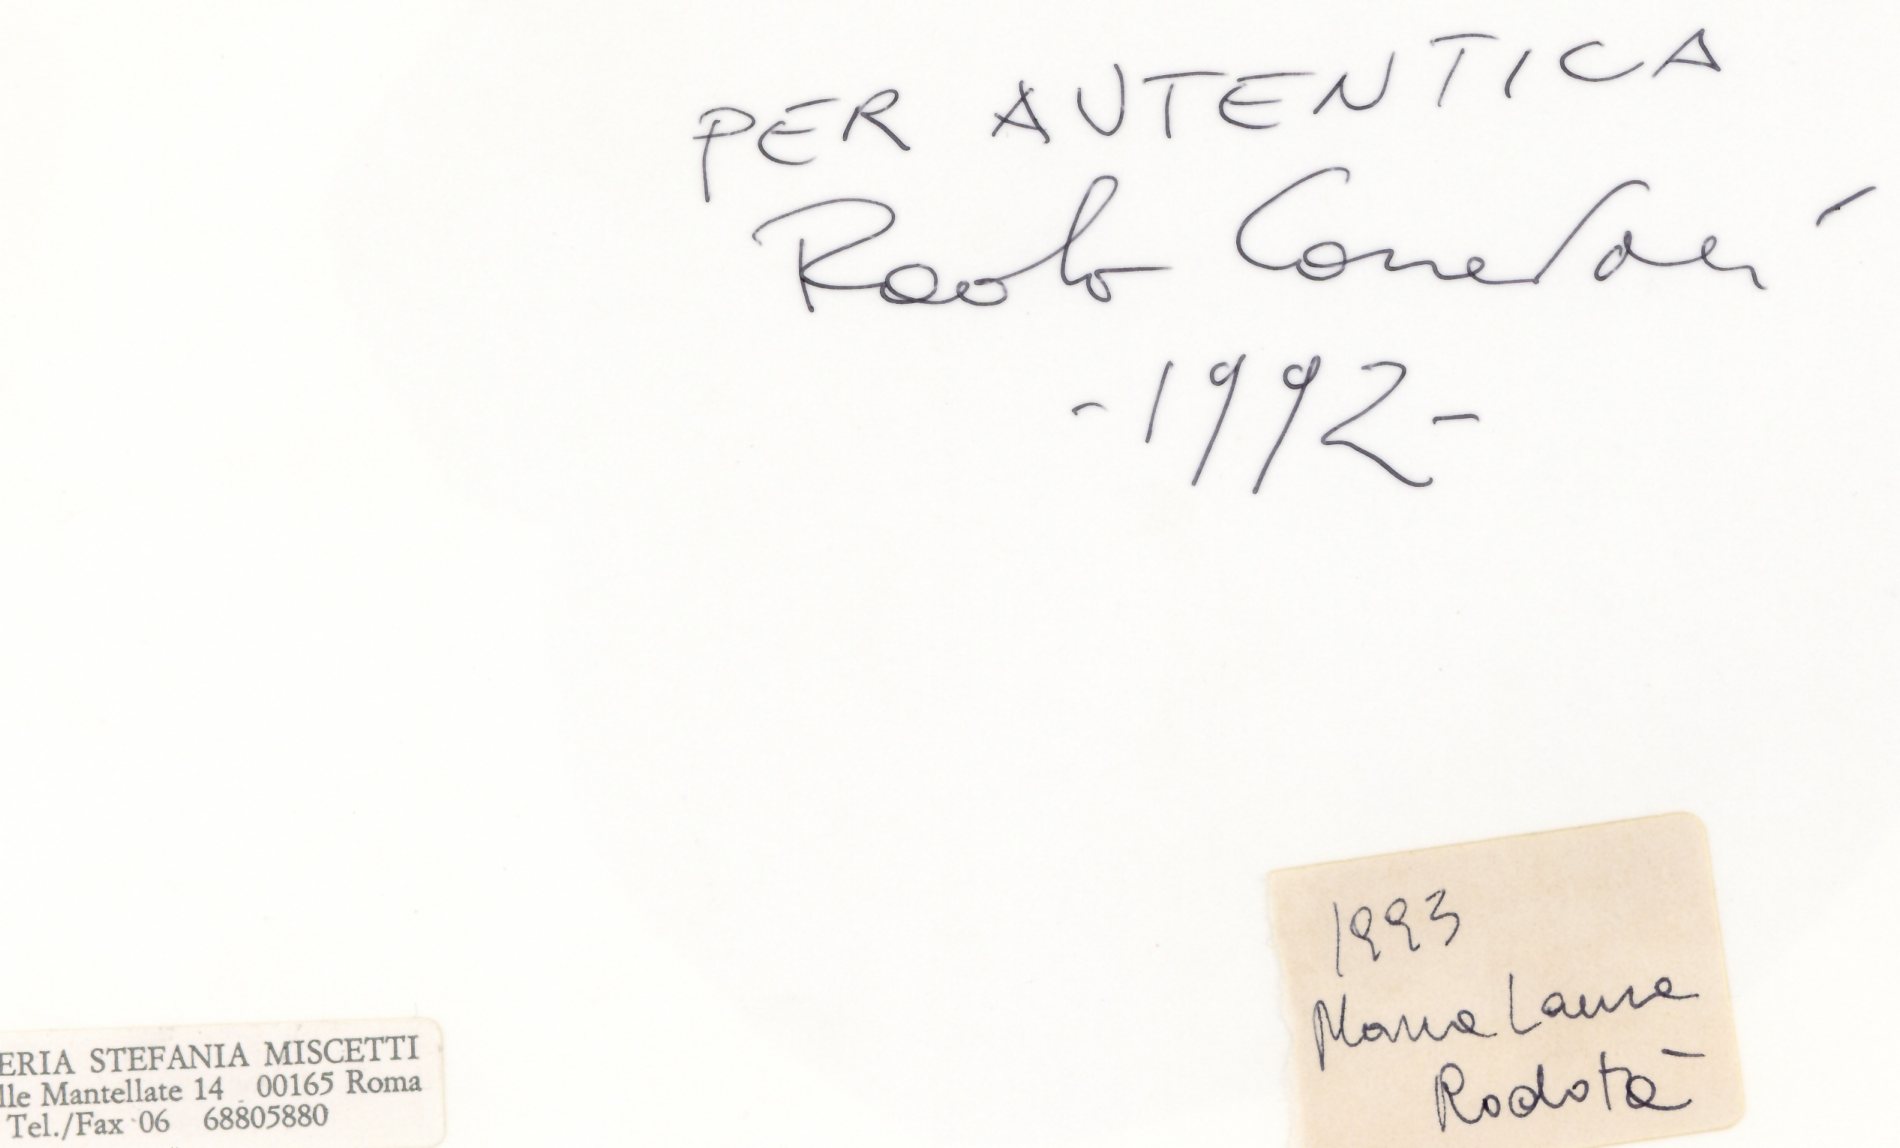 PER AUTENTICA
Paolo Canevari
-1992-
1993
Maria Laura
Rodotà
ERIA STEFANIA MISCETTI
lle Mantellate 14 00165 Roma
Tel./Fax 06 68805880